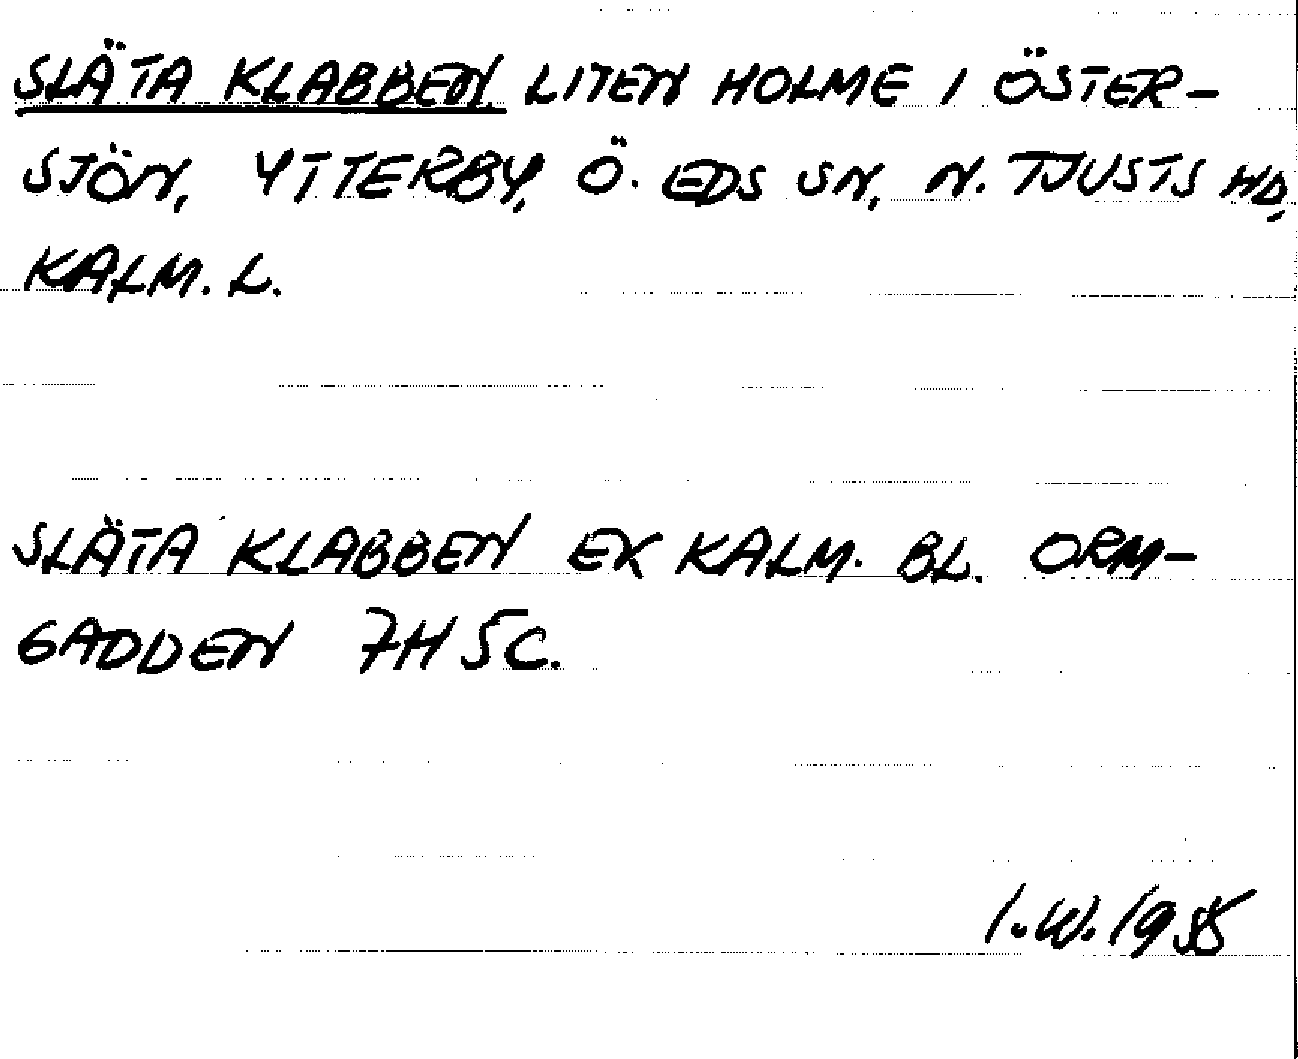 SLÄTA KLABBEN LITEN HOLME I ÖSTER-
SJÖN, YTTERBY, Ö. EDS SN, N. TJUSTS HD,
KALM. L.
SLÄTA KLABBEN EK KALM. BL. ORM-
GADDEN 7H 5C.
I.W.